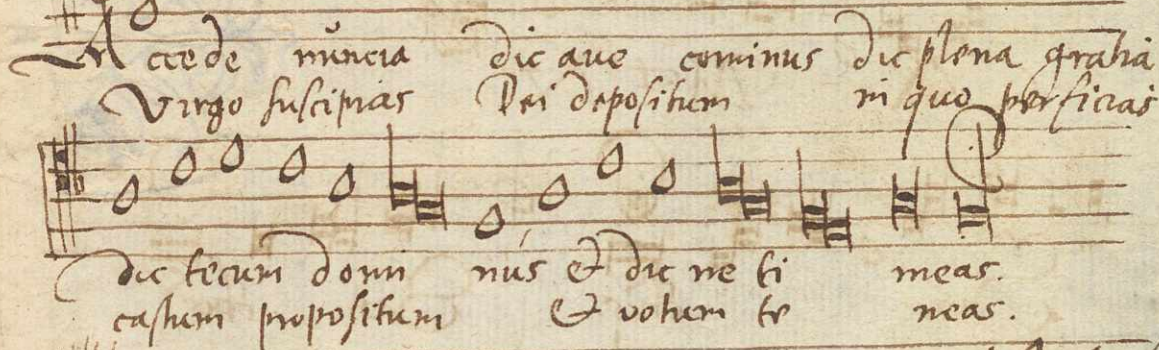 Accede nuncia dic aue cominus dic plena gratia
Virgo suscipias Dei depositum in quo perficias
dic tecum domi nus & dic ne ti meas.
castum propositum & votum te neas.